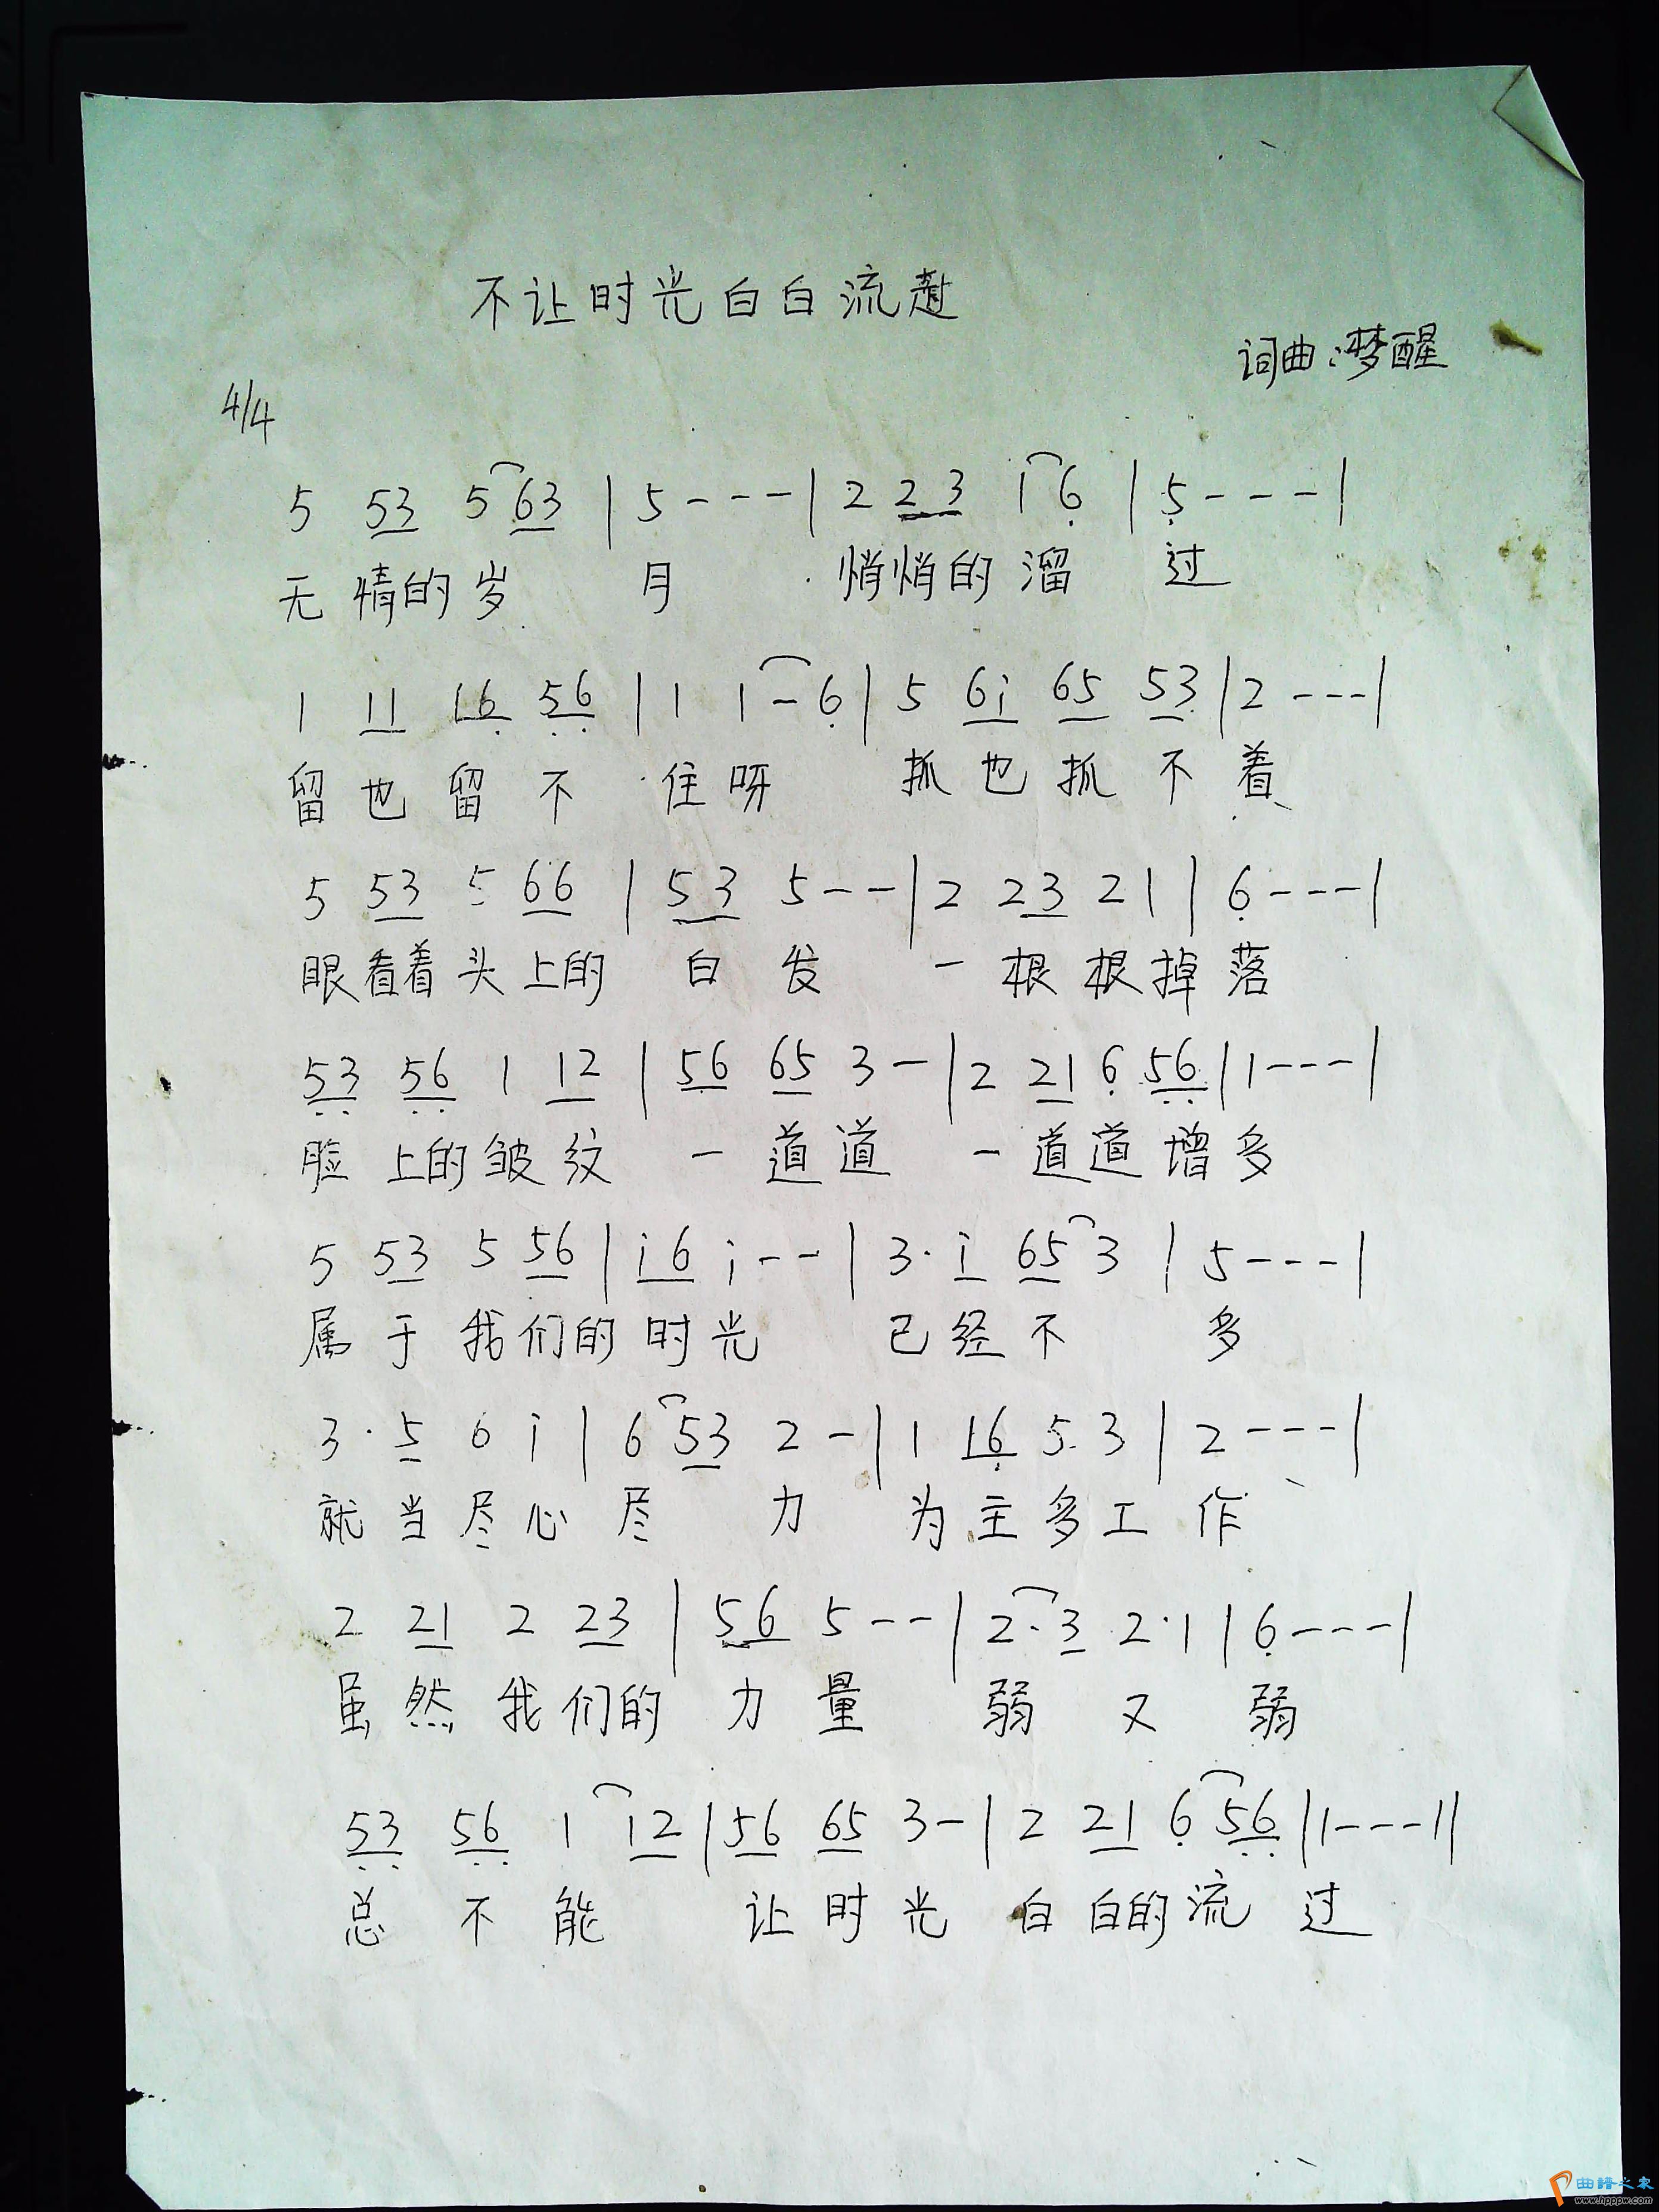 不让时光白白流
词曲:梦醒
4/4
5 53 5 63 | 5 - - - | 2 23 1 6 | 5 - - - |
无情的岁 月 悄悄的溜 过
1 11 16 56 | 1 1 - 6 | 5 6i 65 53 | 2 - - - |
留也留不 住呀 抓也抓不着
5 53 5 66 | 53 5 - - | 2 23 21 | 6 - - - |
眼看着头上的 白发 一根根掉落
53 56 1 12 | 56 65 3 - | 2 21 6 56 | 1 - - - |
脸上的皱纹 一道道 一道道增多
5 53 5 56 | i6 i - - | 3· i 65 3 | 5 - - - |
属于我们的时光 已经不 多
3· 5 6 i | 6 53 2 - | 1 16 5 3 | 2 - - - |
就当尽心尽 力 为主多工作
2 21 2 23 | 56 5 - - | 2· 3 2·1 | 6 - - - |
虽然我们的 力量 弱 又 弱
53 56 1 12 | 56 65 3 - | 2 21 6 56 | 1 - - - ||
总不能 让时光 白白的流过
曲谱之家
www.hpppw.com